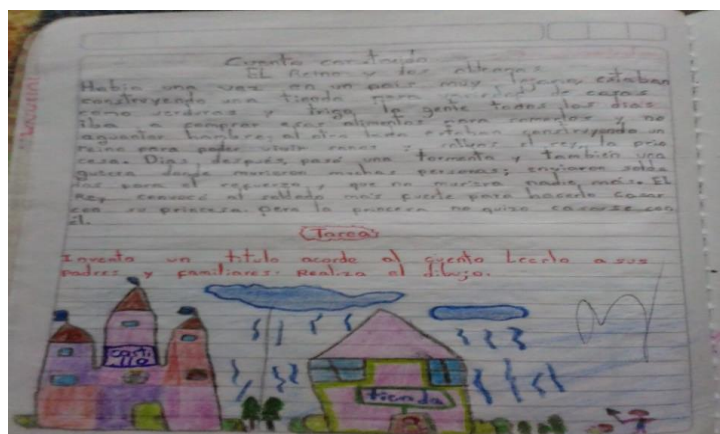 Cuento construido
El Reino y dos aldeanas
Había una vez en un país muy lejano, estaban
construyendo una tienda para de cosas
como verduras y trigo, la gente todos los días
iba a comprar esos alimentos para comerlos y no
aguantar hambre; al otro lado estaban construyendo un
reino para poder vivir el rey, la prin
cesa. Dias después, pasó una tormenta y también una
guerra donde murieron muchas personas; enviaron solda
dos para el refuerzo y que no muriera nadie más. El
Rey convocó al soldado más fuerte para hacerlo casar
con su princesa. pero la princesa no quizo casarse con
él.
Tarea
Inventa un título acorde al cuento Leerlo a sus
padres y familiares. Realiza el dibujo.
casti
llo
tienda